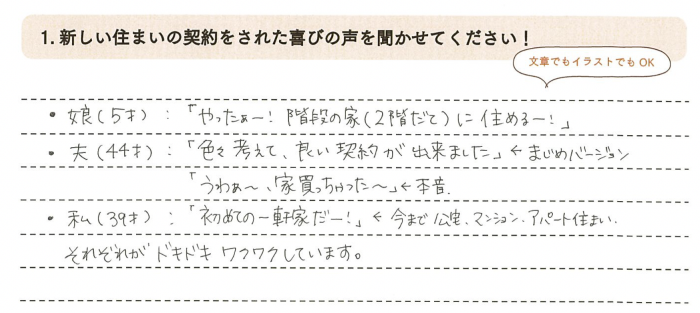 1. 新しい住まいの契約をされた喜びの声を聞かせてください！
文章でもイラストでも OK
・娘(5才)：「やったぁー！階段の家(2階だて)に住めるー！」
・夫(44才)：「色々考えて、良い契約が出来ました」← まじめバージョン
「うわぁ〜、家買っちゃった〜」← 本音.
・私(39才)：「初めての一軒家だー！」← 今まで公宅、マンション、アパート住まい.
それぞれがドキドキワクワクしています。